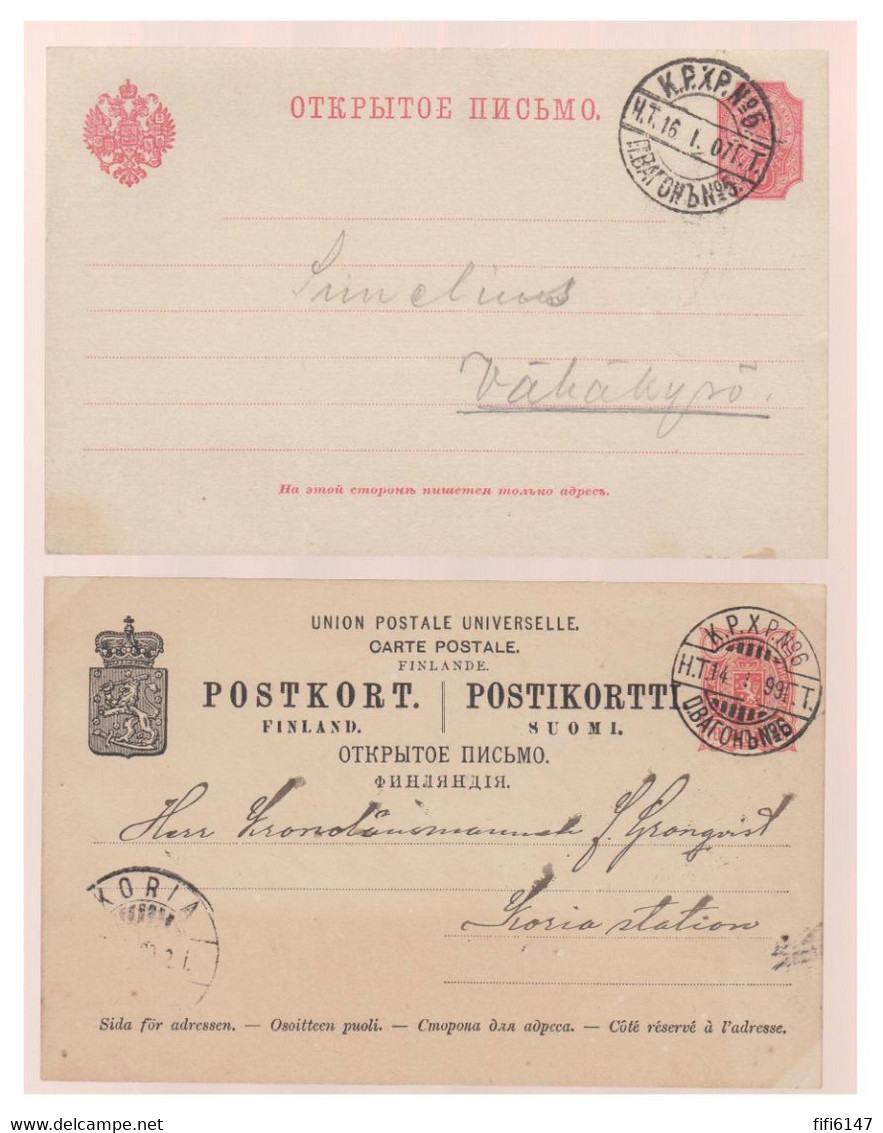 ОТКРЫТОЕ ПИСЬМО.
К.Р.ХР.№6
Н.Т.16 I. 07Г.Т.
П.ВАГОНЪ№6.
Simelius
Vähäkyrö.
На этой сторонѣ пишется только адресъ.
UNION POSTALE UNIVERSELLE.
CARTE POSTALE.
FINLANDE.
POSTKORT. POSTIKORTTI
FINLAND. SUOMI.
ОТКРЫТОЕ ПИСЬМО.
ФИНЛЯНДІЯ.
К.Р.Х Р.№6
Н.Т.14 I 99Г.Т.
П.ВАГОНЪ№6
Herr Kronolänsmannen J. Grönqvist
Koria station
KORIA
Sida för adressen. — Osoitteen puoli. — Сторона для адреса. — Côté réservé à l'adresse.
delcampe.net
fifi6147